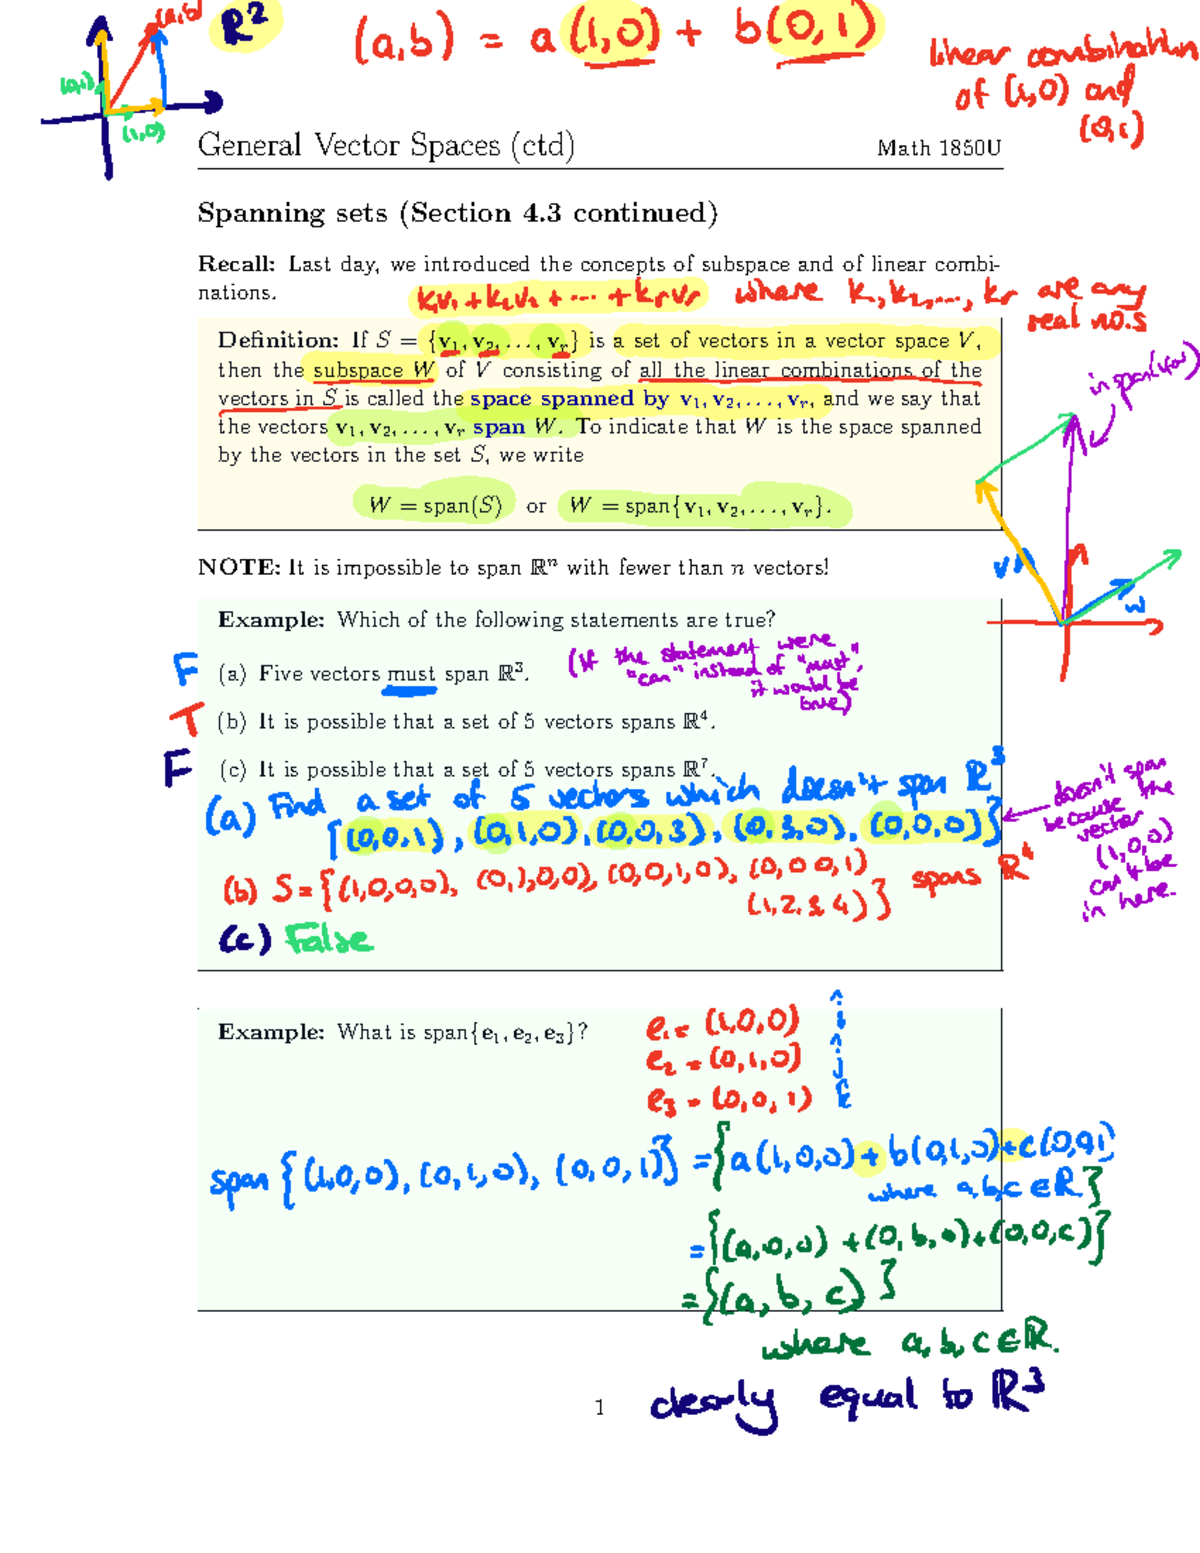 (a,b) R² (a,b) = a(1,0) + b(0,1)
(0,1)
(1,0)
linear combination
of (1,0) and
(0,1)
General Vector Spaces (ctd) Math 1850U
Spanning sets (Section 4.3 continued)
Recall: Last day, we introduced the concepts of subspace and of linear combi-
nations. k₁v₁+k₂v₂+ ... +kᵣvᵣ where k₁,k₂,..., kᵣ are any
real no.s
Definition: If S = {v₁, v₂, ..., vᵣ} is a set of vectors in a vector space V,
then the subspace W of V consisting of all the linear combinations of the
vectors in S is called the space spanned by v₁, v₂, ..., vᵣ, and we say that
the vectors v₁, v₂, ..., vᵣ span W. To indicate that W is the space spanned
by the vectors in the set S, we write
W = span(S) or W = span{v₁, v₂, ..., vᵣ}.
v
w
NOTE: It is impossible to span ℝⁿ with fewer than n vectors!
Example: Which of the following statements are true?
F (a) Five vectors must span ℝ³.
(If the statement were
"can" instead of "must",
it would be
true)
T (b) It is possible that a set of 5 vectors spans ℝ⁴.
F (c) It is possible that a set of 5 vectors spans ℝ⁷.
(a) Find a set of 5 vectors which doesn't span ℝ³
{(0,0,1), (0,1,0), (0,0,3), (0,3,0), (0,0,0)}
doesn't span
because the
vector
(1,0,0)
can't be
in here.
(b) S={(1,0,0,0), (0,1,0,0), (0,0,1,0), (0,0,0,1)
(1,2,3,4)} spans ℝ⁴
(c) False
Example: What is span{e₁, e₂, e₃}?
e₁ = (1,0,0) î
e₂ = (0,1,0) ĵ
e₃ = (0,0,1) k̂
span {(1,0,0), (0,1,0), (0,0,1)} = {a(1,0,0)+b(0,1,0)+c(0,0,1)
where a,b,c ∈ ℝ}
= {(a,0,0) + (0,b,0)+(0,0,c)}
= {(a,b,c)}
where a,b,c ∈ ℝ.
1 clearly equal to ℝ³